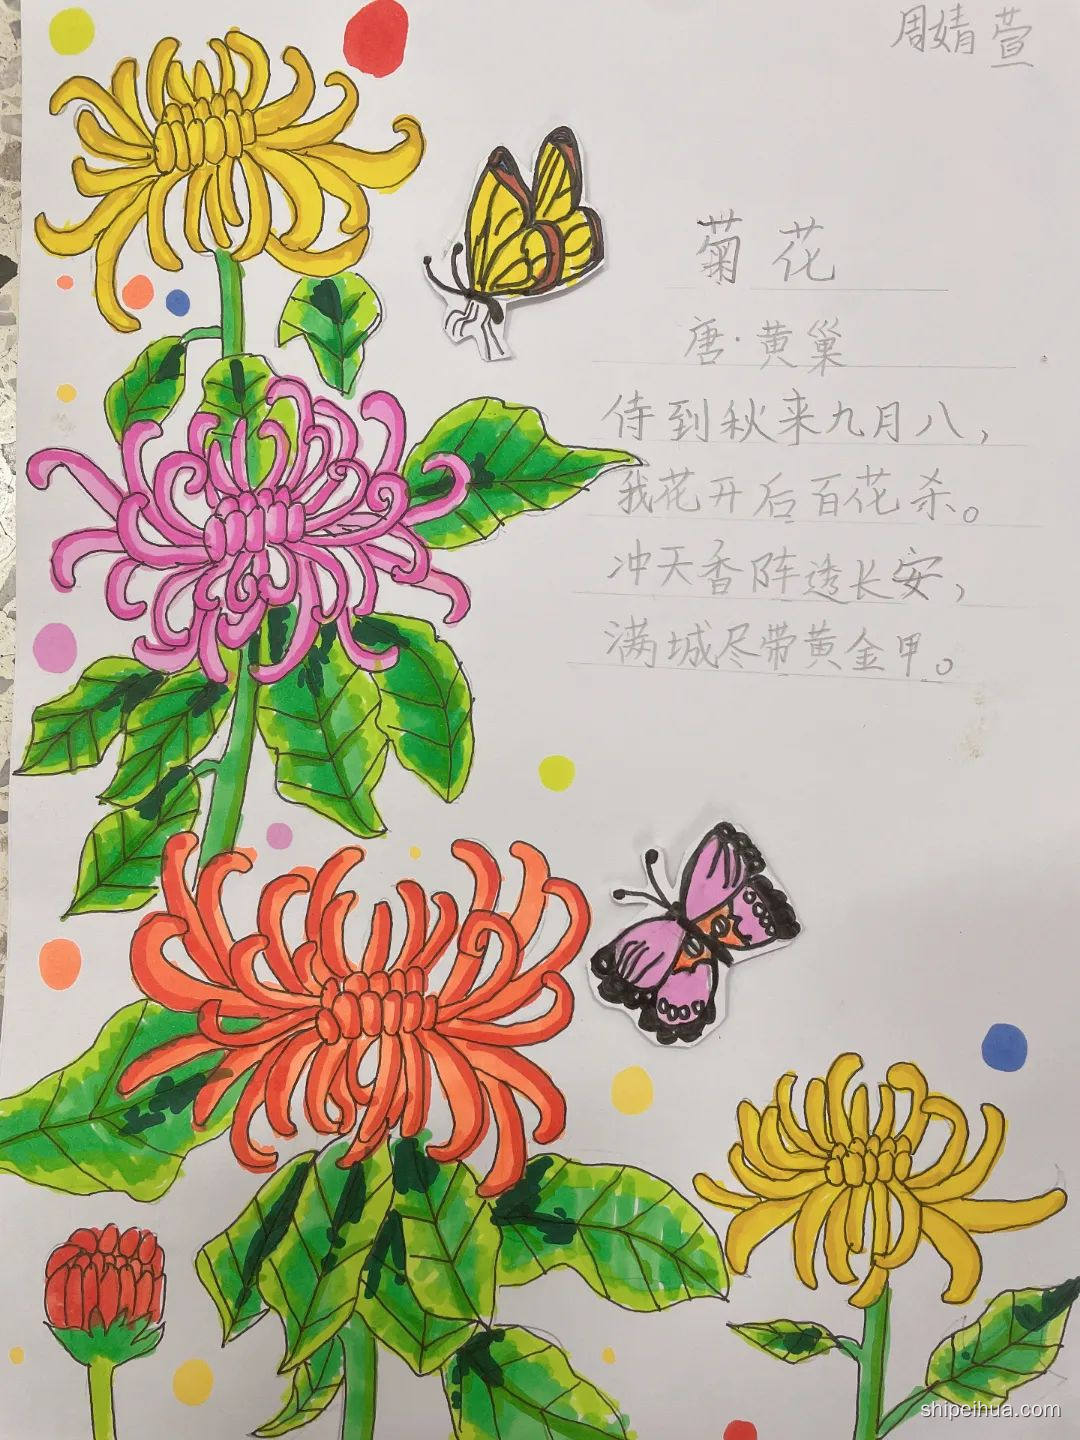 周婧萱
菊花
唐·黄巢
侍到秋来九月八，
我花开后百花杀。
冲天香阵透长安，
满城尽带黄金甲。
shipeihua.com